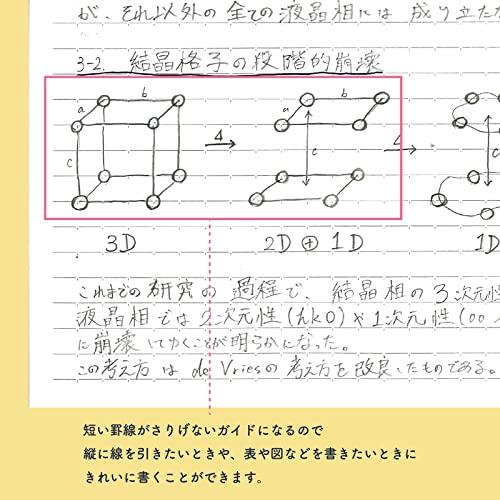 が、それ以外の全ての液晶相には成り立た
3-2. 結晶格子の段階的崩壊
a b c
4
a b c
4
3D
2D ⊕ 1D
1D
これまでの研究の過程で、結晶相の3次元性
液晶相では2次元性(hk0)や1次元性(00
に崩壊してゆくことが明らかになった。
この考え方は de Vriesの考え方を改良したものである。
短い罫線がさりげないガイドになるので
縦に線を引きたいときや、表や図などを書きたいときに
きれいに書くことができます。